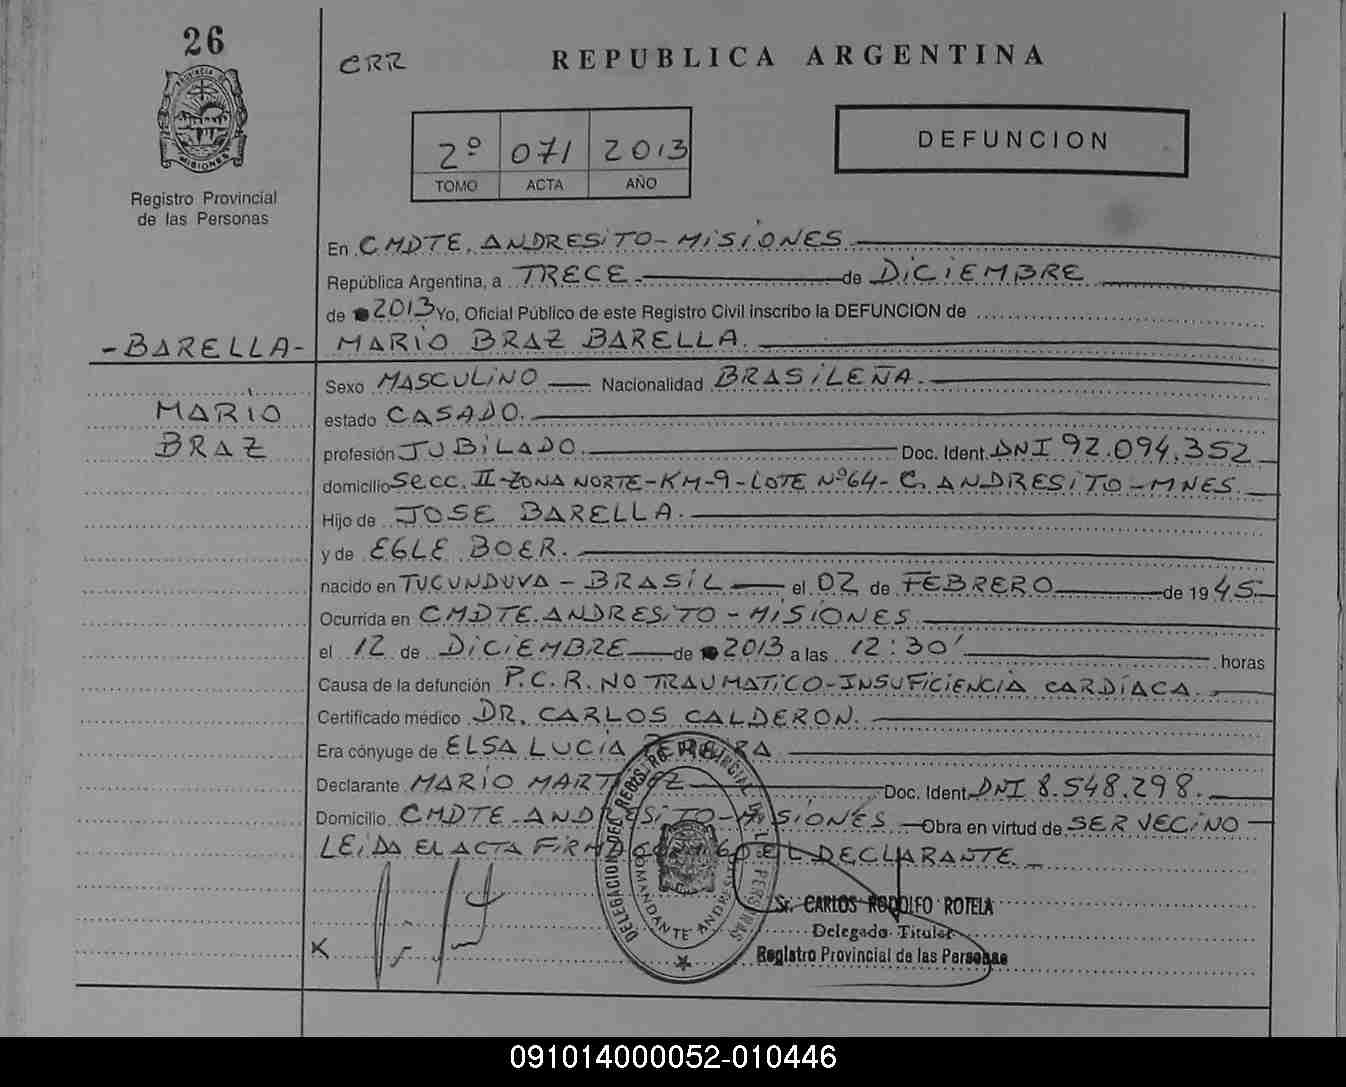 26
CRR
REPUBLICA ARGENTINA
PROVINCIA DE
MISIONES
2º 071 2013
TOMO ACTA AÑO
DEFUNCION
Registro Provincial
de las Personas
En CMDTE. ANDRESITO - MISIONES
República Argentina, a TRECE de DICIEMBRE
de 2013 Yo, Oficial Público de este Registro Civil inscribo la DEFUNCION de
-BARELLA- MARIO BRAZ BARELLA.
Sexo MASCULINO Nacionalidad BRASILEÑA.
MARIO estado CASADO.
BRAZ profesión JUBILADO. Doc. Ident. DNI 92.094.352
domicilio SECC. II-ZONA NORTE-KM-9-LOTE Nº64- C. ANDRESITO-MNES.
Hijo de JOSE BARELLA.
y de EGLE BOER.
nacido en TUCUNDUVA - BRASIL el 02 de FEBRERO de 1945
Ocurrida en CMDTE. ANDRESITO - MISIONES
el 12 de DICIEMBRE de 2013 a las 12:30' horas
Causa de la defunción P.C.R. NO TRAUMATICO-INSUFICIENCIA CARDIACA.
Certificado médico DR. CARLOS CALDERON.
Era cónyuge de ELSA LUCIA PEREIRA
Declarante MARIO MARTINEZ Doc. Ident. DNI 8.548.298.
Domicilio CMDTE. ANDRESITO-MISIONES Obra en virtud de SER VECINO
LEIDA EL ACTA FIRMA CONMIGO EL DECLARANTE
DELEGACION DEL REGISTRO PROVINCIAL DE LAS PERSONAS
COMANDANTE ANDRESITO
Sr. CARLOS RODOLFO ROTELA
Delegado Titular
Registro Provincial de las Personas
091014000052-010446